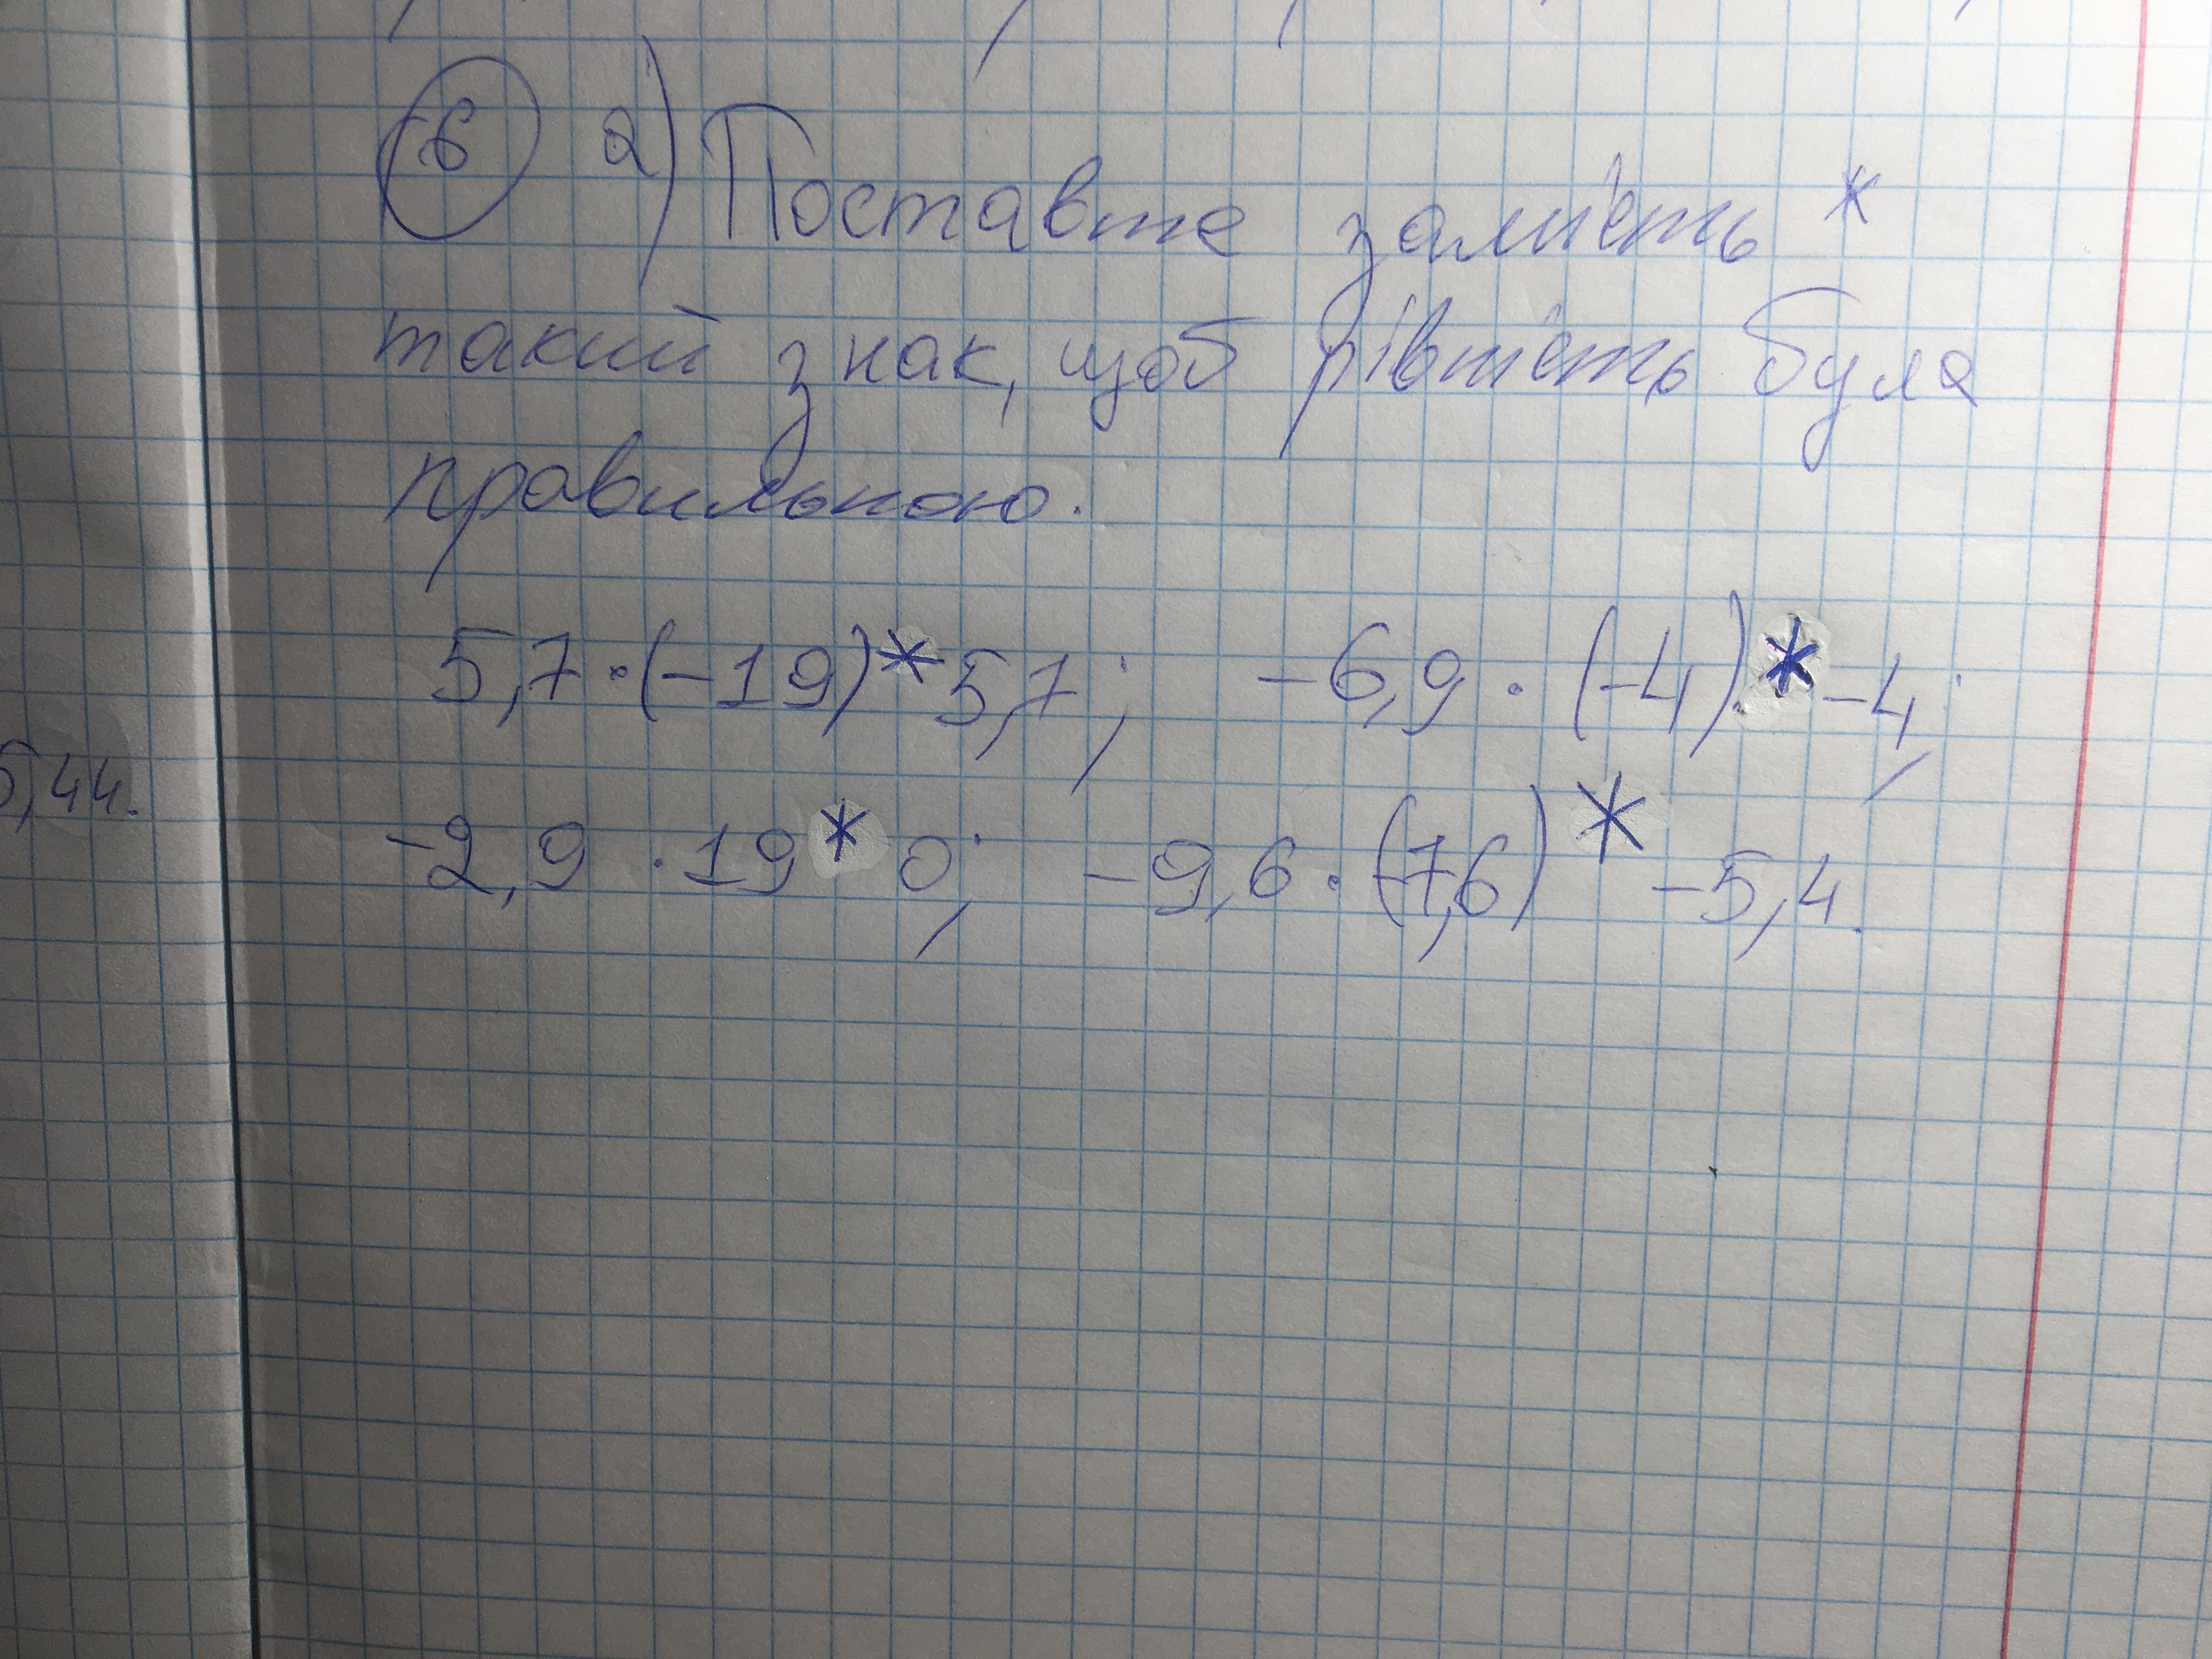 6 2) Поставте замість *
такий знак, щоб рівність була
правильною.
5,7·(-19)*5,7; -6,9·(-4)*-4;
5,44.
-2,9·19*0; -9,6·(-7,6)*-5,4.